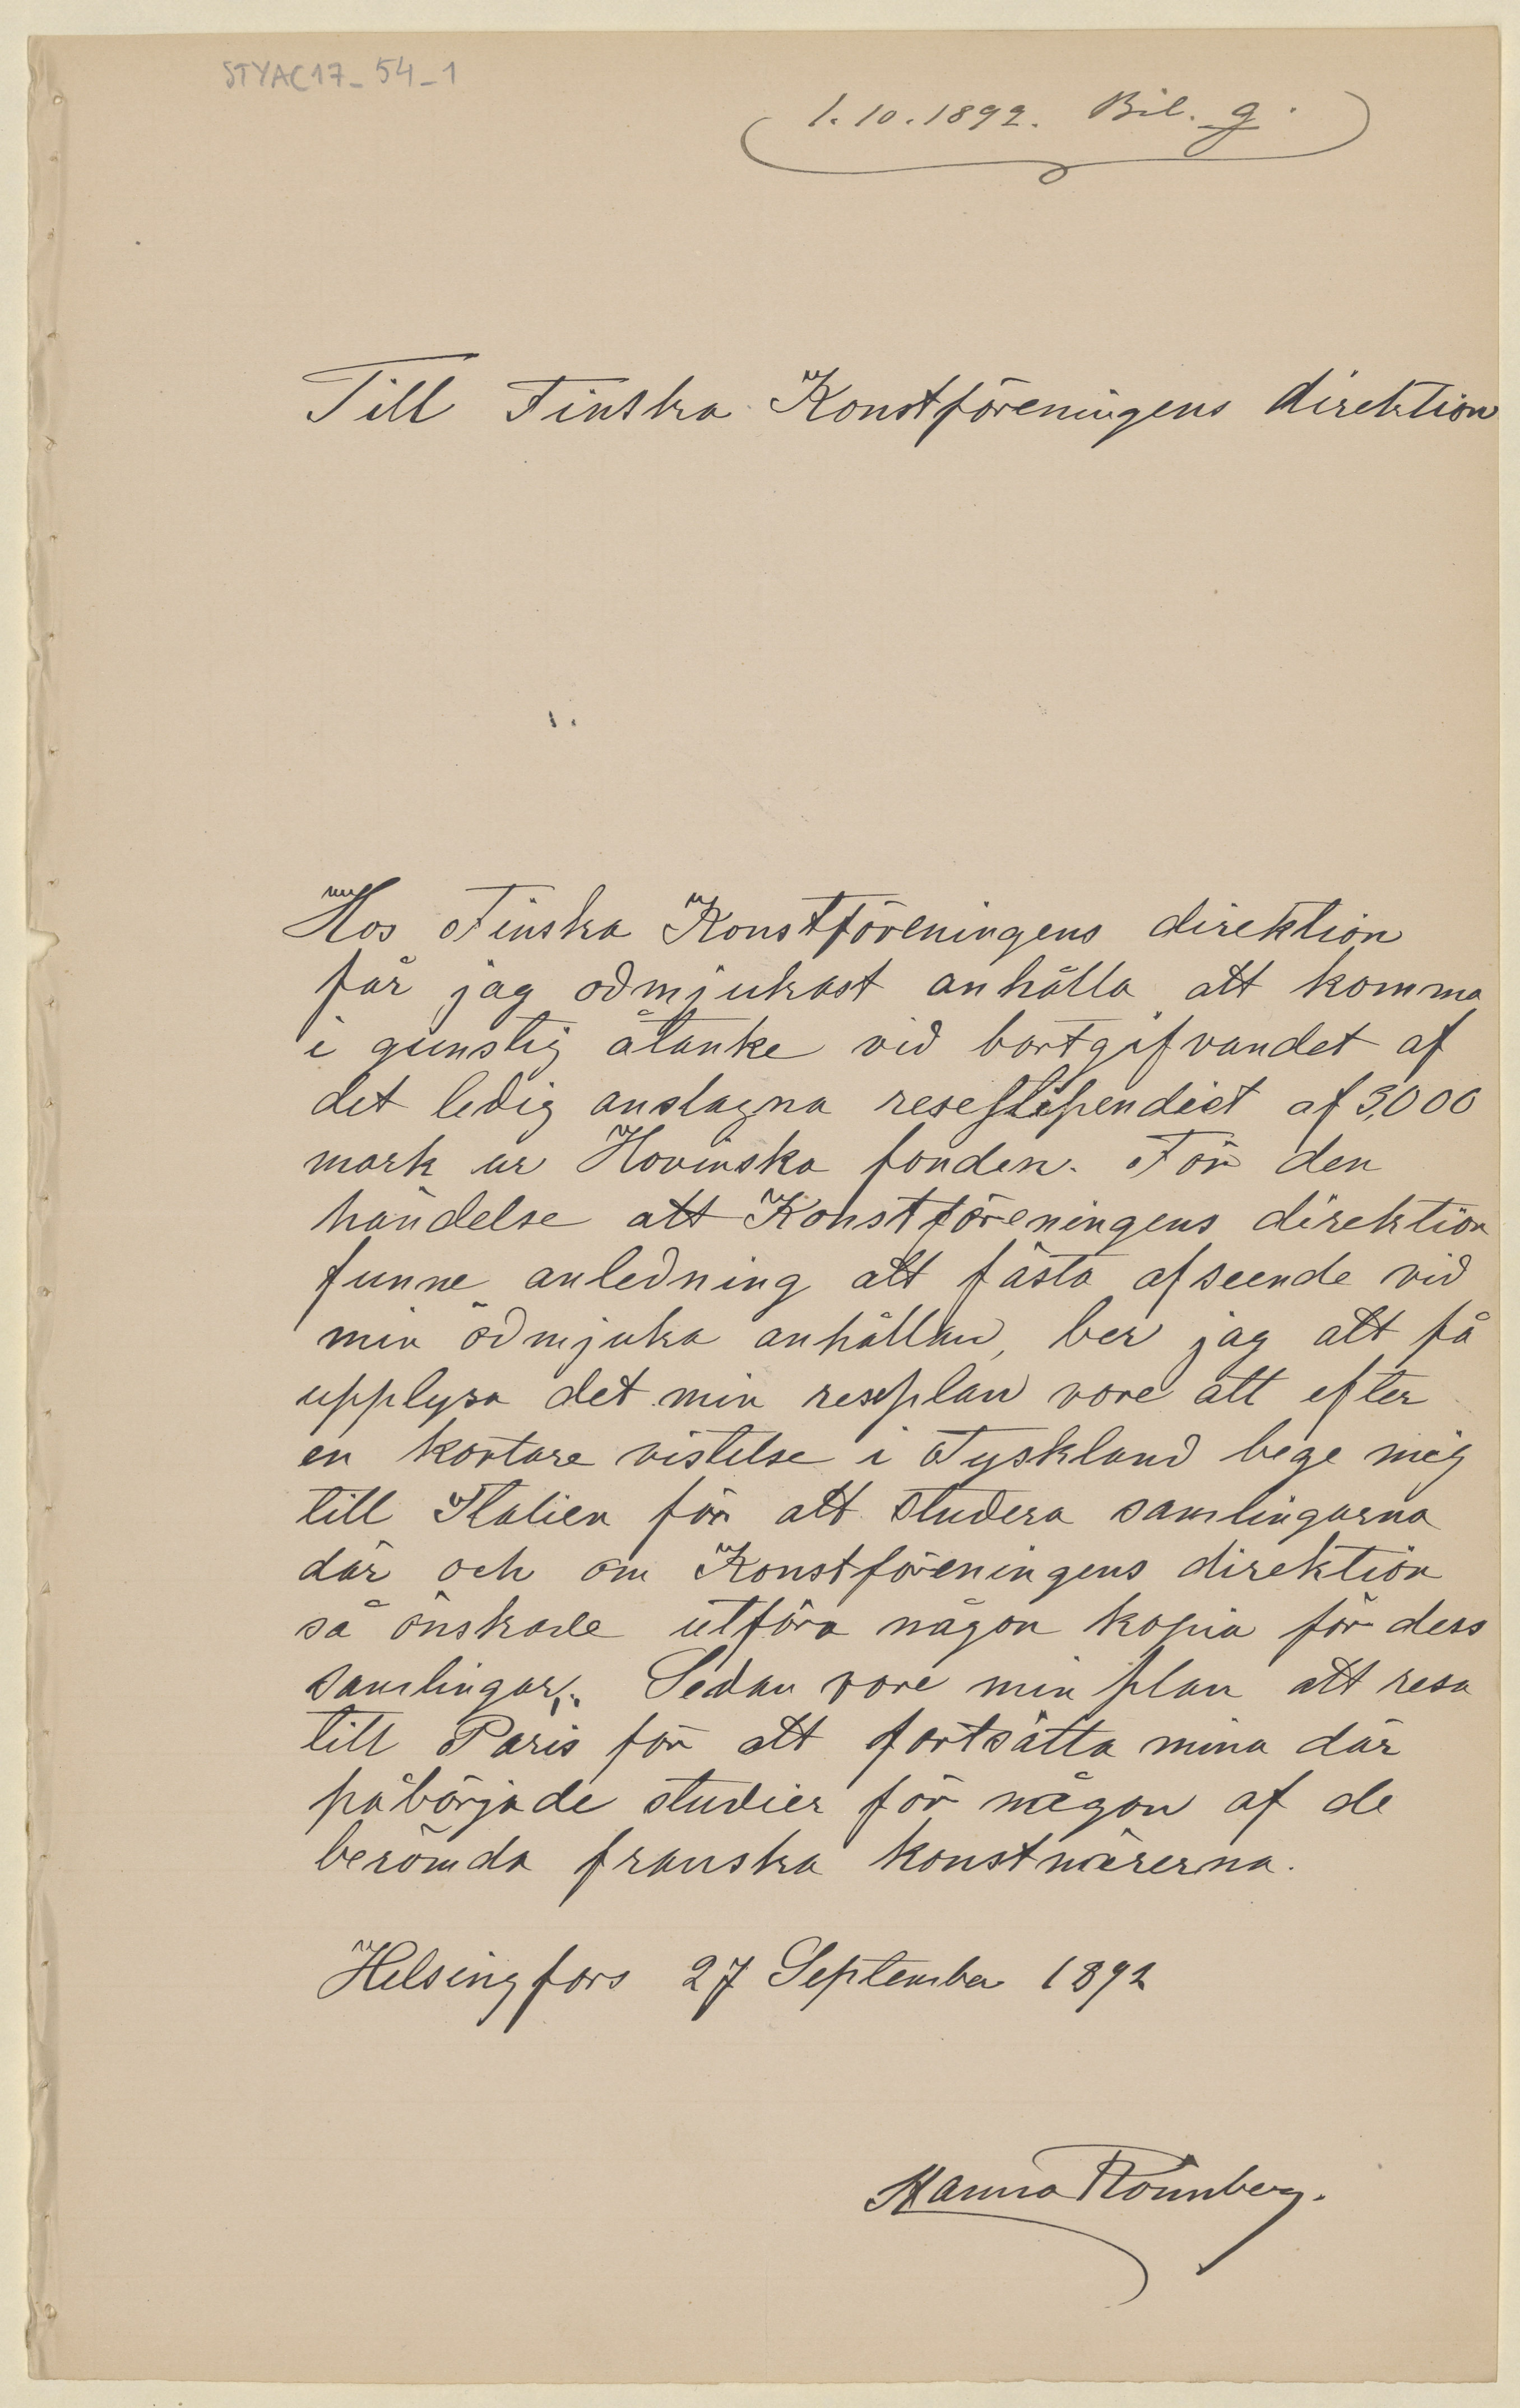 STYAC17_54_1
1.10.1892. Bil. g.
Till Finska Konstföreningens direktion
Hos Finska Konstföreningens direktion
får jag ödmjukast anhålla att komma
i gunstig åtanke vid bortgifvandet af
det ledig anslagna resestipendiet af 3,000
mark ur Hovinska fonden. För den
händelse att Konstföreningens direktion
funne anledning att fästa afseende vid
min ödmjuka anhållan, ber jag att få
upplysa det min reseplan vore att efter
en kortare vistelse i Tyskland bege mig
till Italien för att studera samlingarna
där och om Konstföreningens direktion
så önskade utföra någon kopia för dess
samlingar. Sedan vore min plan att resa
till Paris för att fortsätta mina där
påbörjade studier för någon af de
berömda franska konstnärerna.
Helsingfors 27 September 1892
Hanna Rönnberg.